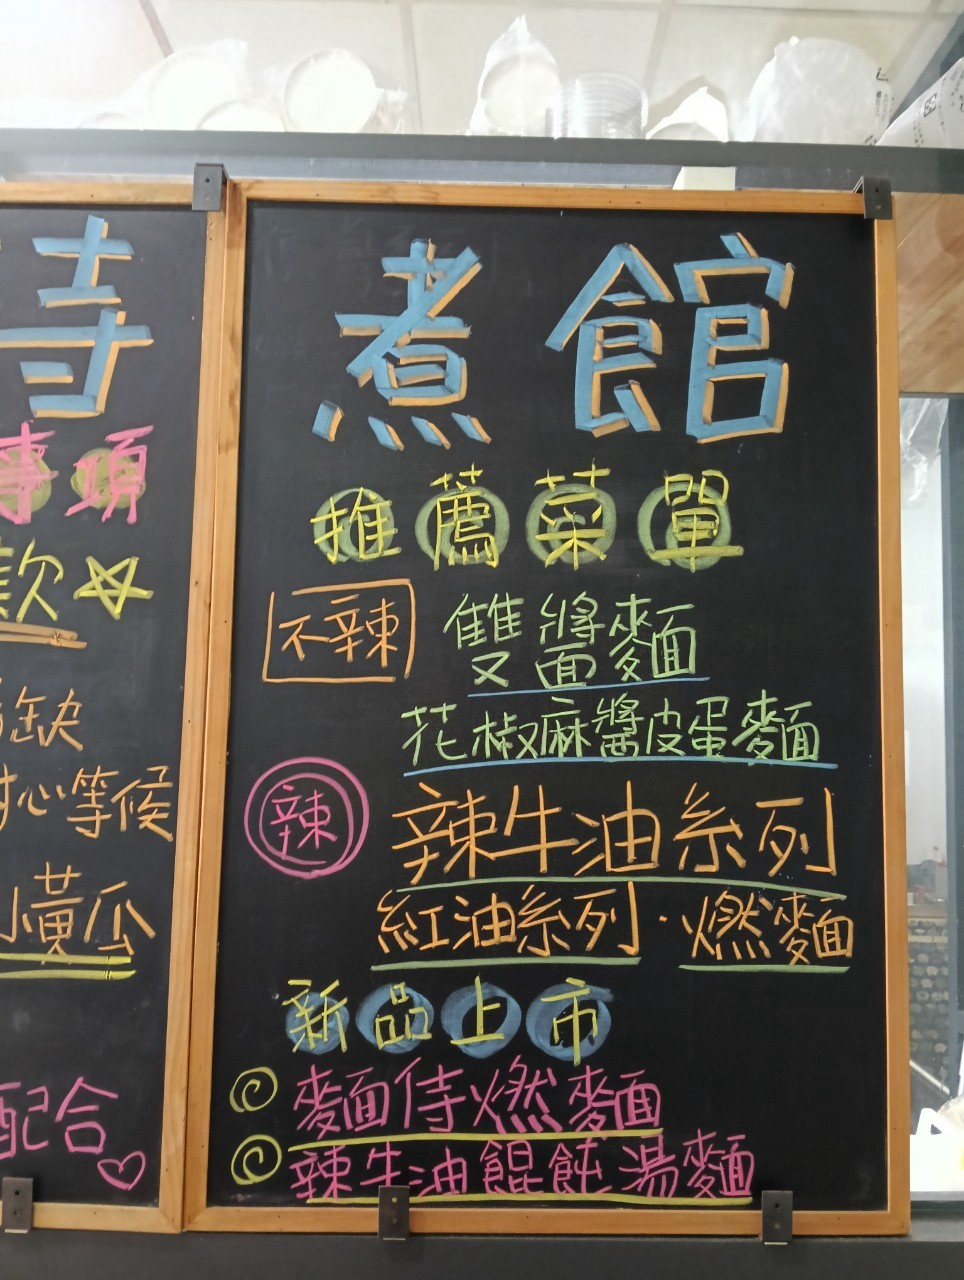 寺
事項
款☆
缺
心等候
黃瓜
配合♡
煮食官
推薦菜單
不辣 雙醬麵
花椒麻醬皮蛋麵
辣 辣牛油系列
紅油系列·燃麵
新品上市
麵侍燃麵
辣牛油餛飩湯麵